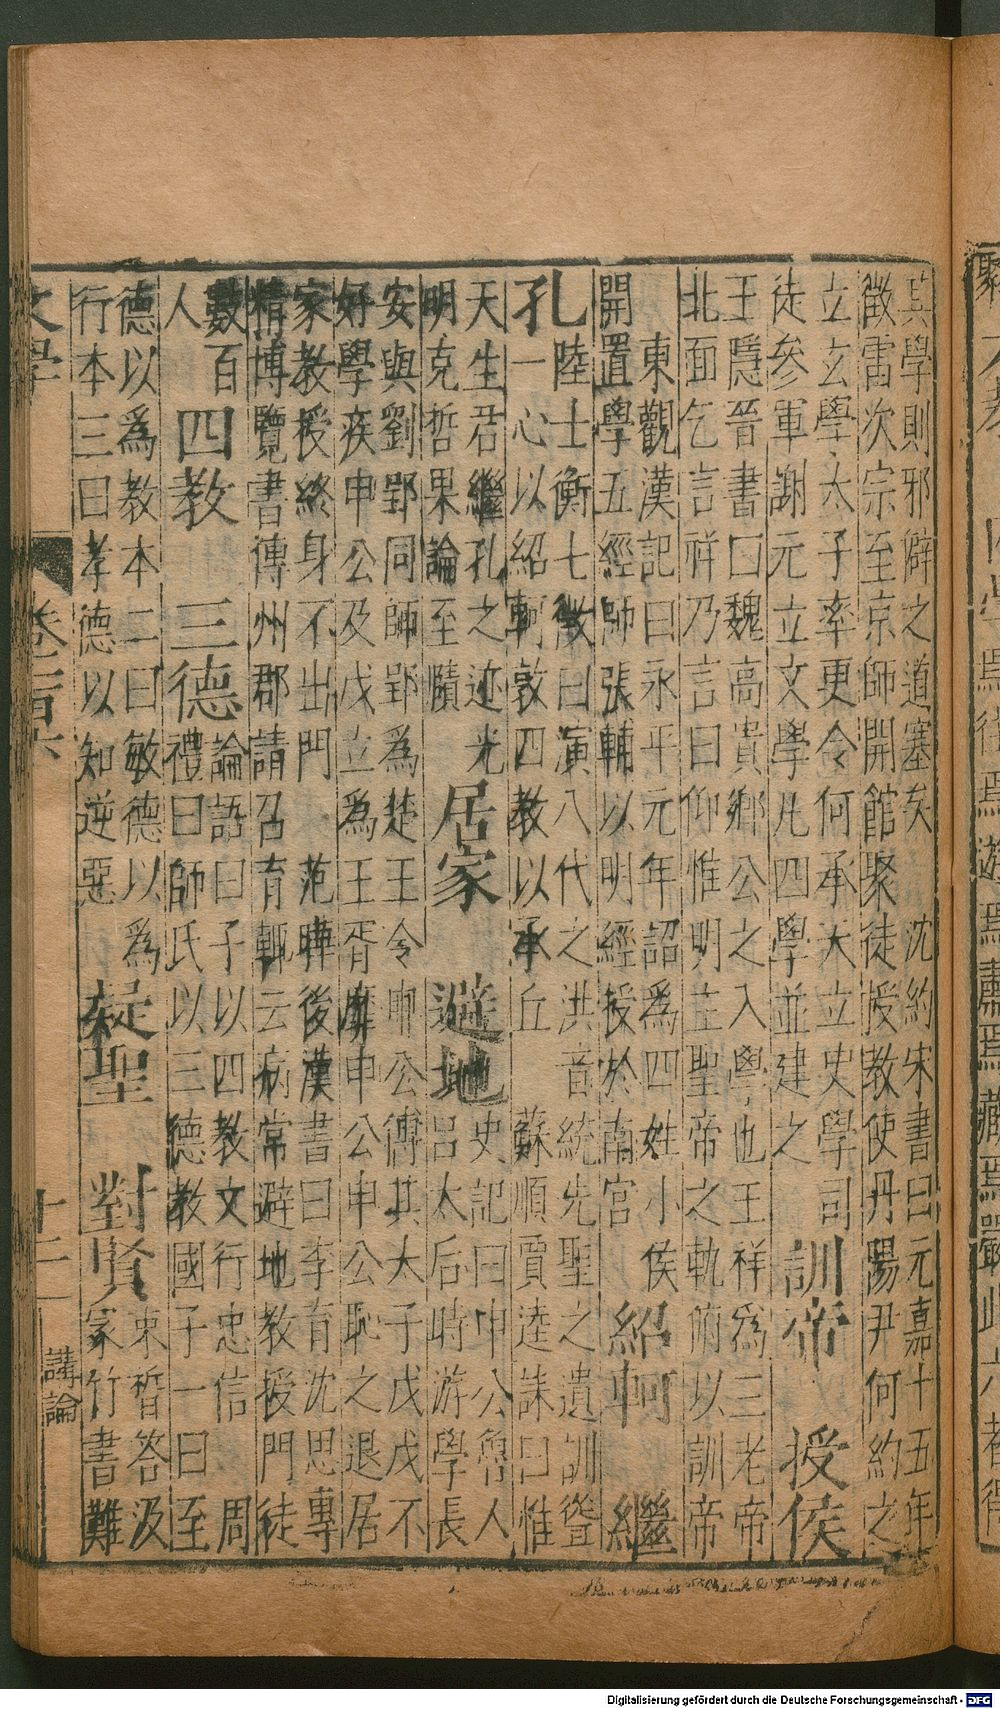 其學則邪僻之道塞矣 沈約宋書曰元嘉十五年
徵雷次宗至京師開館聚徒授教使丹陽尹何約之
立玄學太子率更令何承天立史學司
徒參軍謝元立文學凡四學並建之
訓帝 授侯
王隱晉書曰魏高貴鄉公之入學也王祥爲三老帝
北面乞言祥乃言曰仰惟明主聖帝之軌俯以訓帝
東觀漢記曰永平元年詔爲四姓小侯
開置學五經師張輔以明經授於南宮
紹軻 繼
孔
陸士衡七徵曰演八代之洪音統先聖之遺訓聳
一心以紹軻敦四教以承丘 蘇順賈逵誄曰惟
天生君繼孔之迹光
明克哲果論至賾
居家 避地
史記曰申公魯人
呂太后時游學長
安與劉郢同師郢爲楚王令申公傅其太子戊戊不
好學疾申公及戊立爲王胥靡申公申公恥之退居
家教授終身不出門 范曄後漢書曰李育沈思專
精博覽書傳州郡請召育輒云病常避地教授門徒
數百
人
四教 三德
論語曰子以四教文行忠信 周
禮曰師氏以三德教國子一曰至
德以爲教本二曰敏德以爲
行本三曰孝德以知逆惡
凝聖 對賢
束晳答汲
冢竹書難
文學 卷二百六 十二 講論
Digitalisierung gefördert durch die Deutsche Forschungsgemeinschaft - DFG